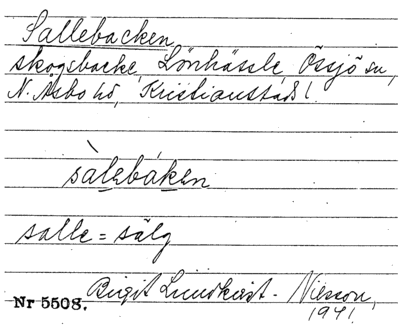 Sallebacken
skogsbacke, Lönhässle, Össjö sn,
N. Åsbo hd, Kristianstads l.
sàlebáken
salle = sälg
Birgit Lundkvist - Nilsson,
1941
Nr 5508.